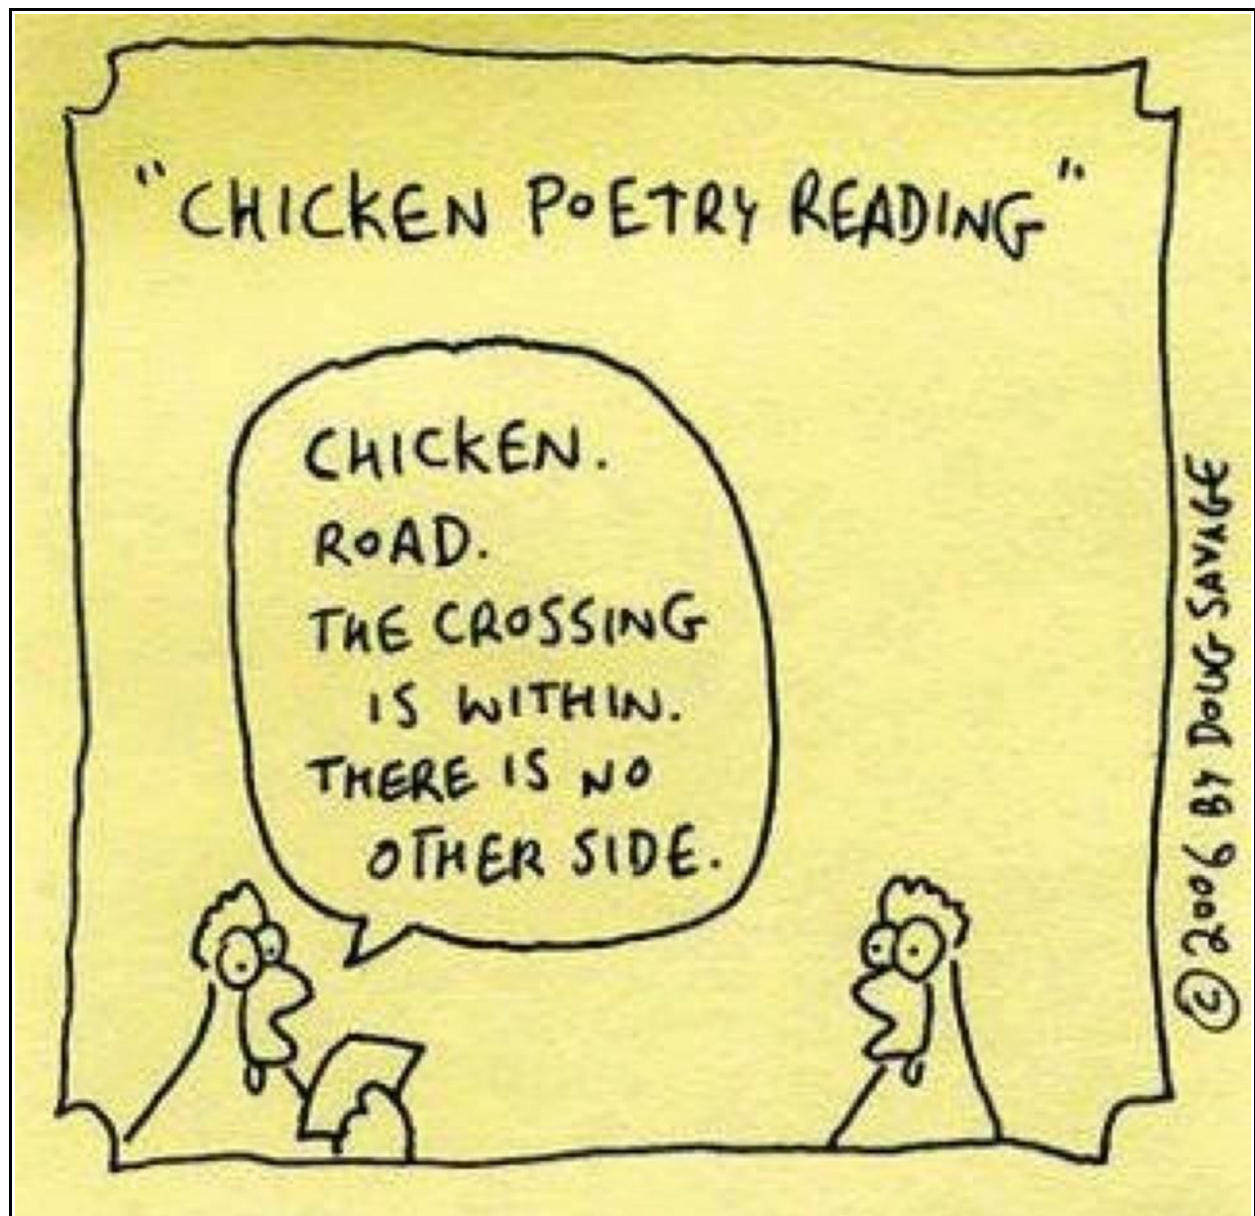 "CHICKEN POETRY READING"
CHICKEN.
ROAD.
THE CROSSING
IS WITHIN.
THERE IS NO
OTHER SIDE.
© 2006 BY DOUG SAVAGE